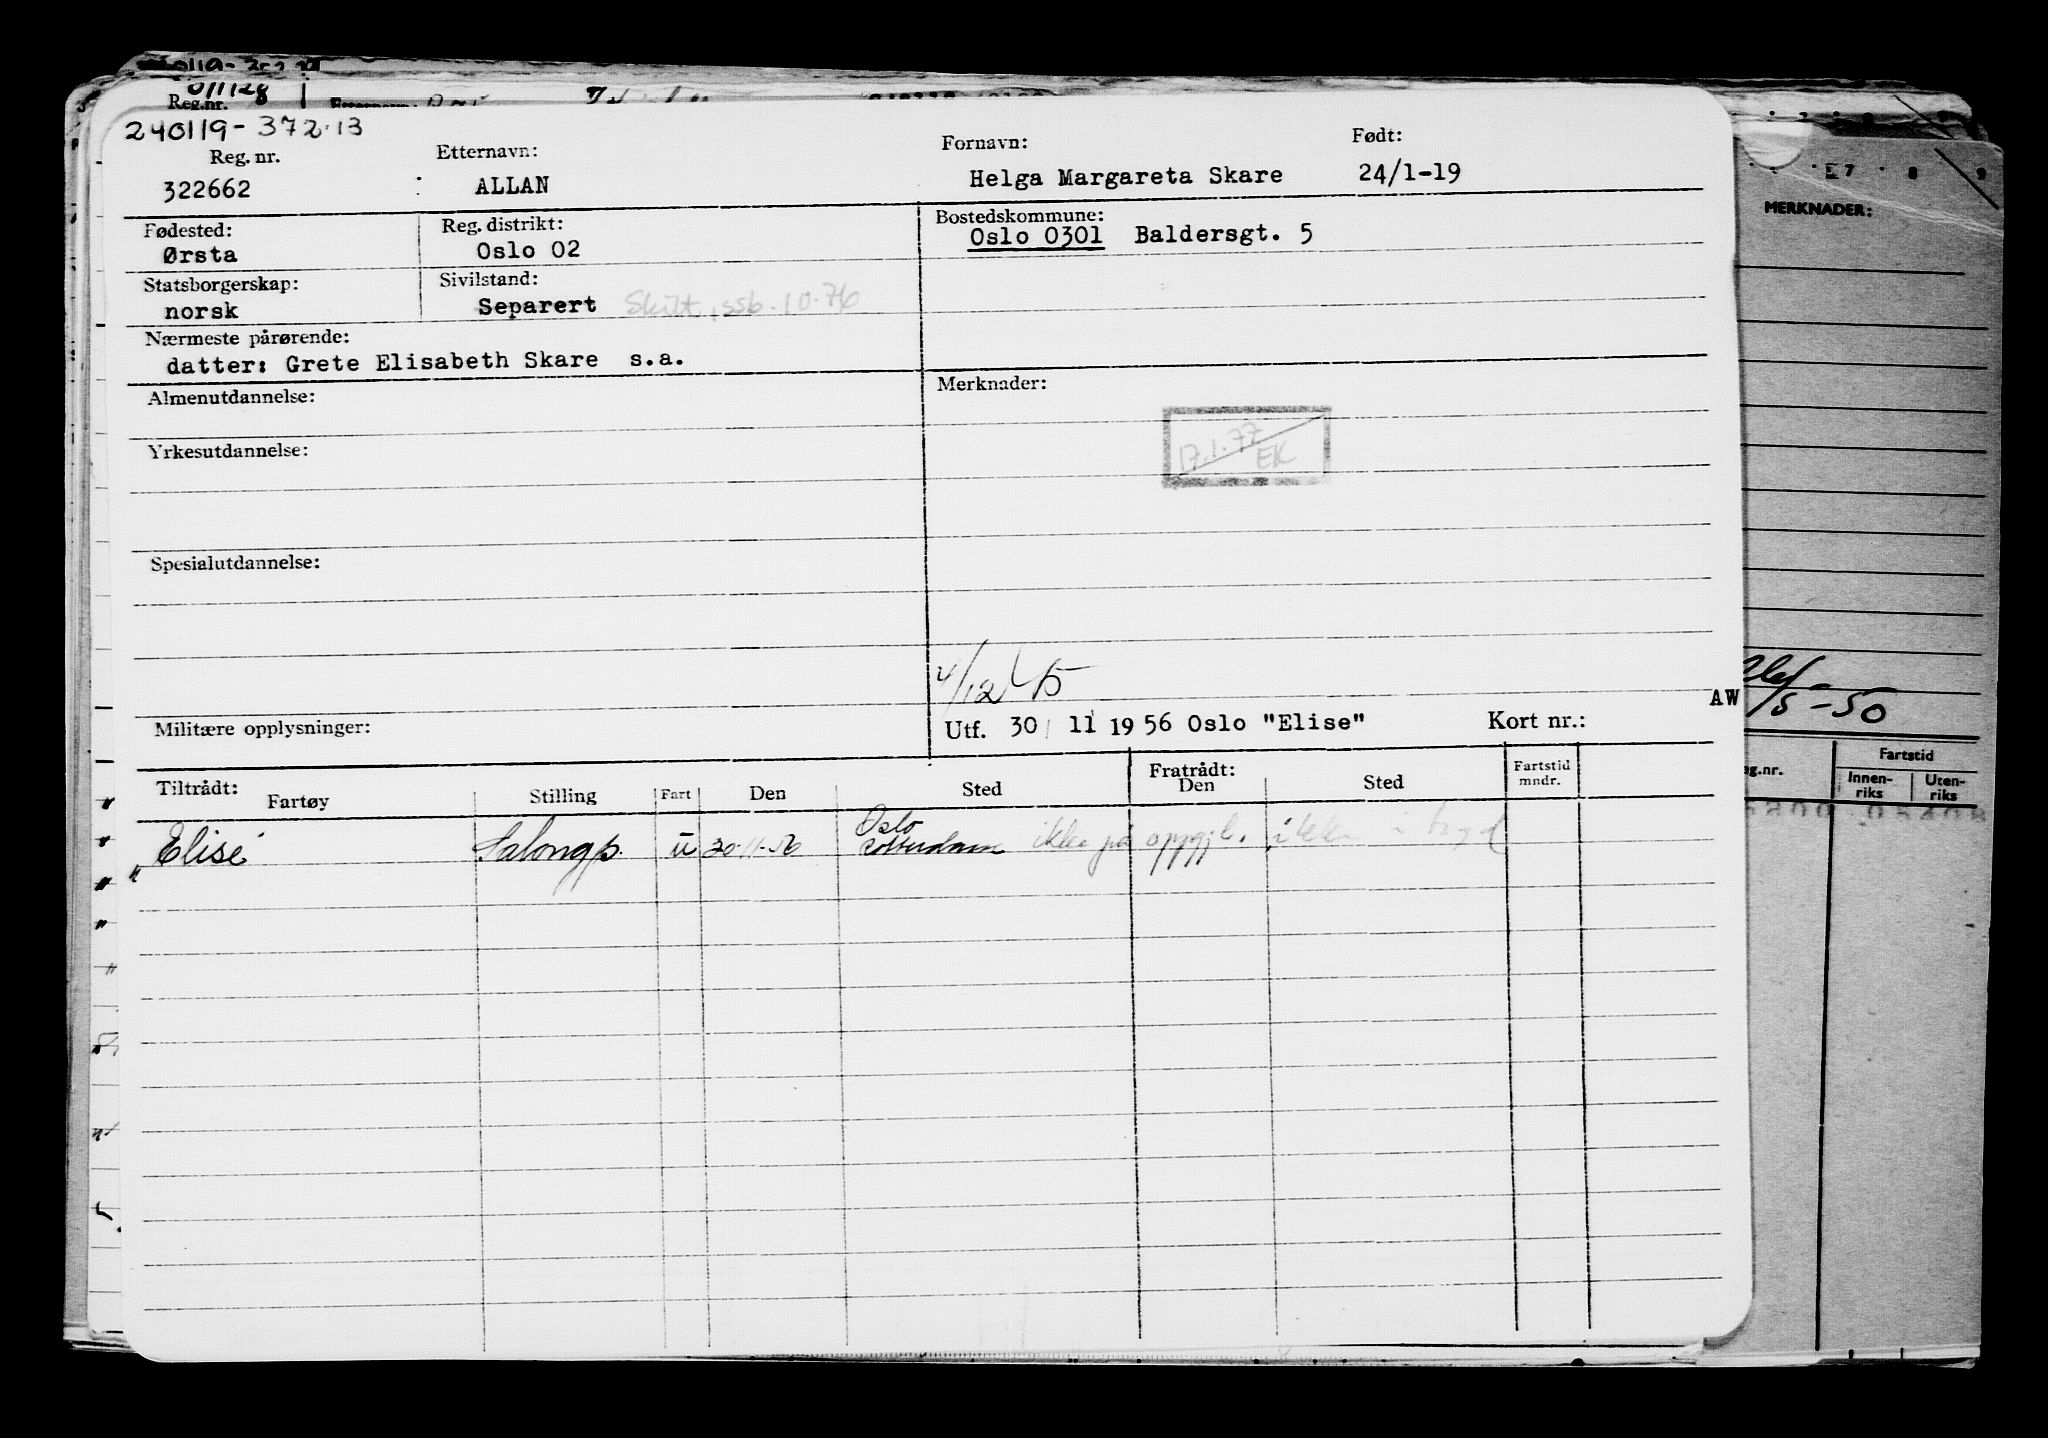 240119-372.13
Reg. nr. Etternavn: Fornavn: Født:
322662 : ALLAN Helga Margareta Skare 24/1-19
Fødested: Reg. distrikt: Bostedskommune:
Ørsta Oslo 02 Oslo 0301 Baldersgt. 5
Statsborgerskap: Sivilstand:
norsk Separert Skilt, ssb. 10-76
Nærmeste pårørende:
datter: Grete Elisabeth Skare s.a.
Almenutdannelse: Merknader:
17.1.77
EK
Yrkesutdannelse:
Spesialutdannelse:
4/12
AW
Militære opplysninger: Utf. 30/ 11 1956 Oslo "Elise" Kort nr.:
Tiltrådt: Fratrådt:
Fartøy Stilling Fart Den Sted Den Sted Fartstid mndr.
Oslo
"Elise" Salongp. u 30-11-56 Rotterdam ikke på oppgj.
MERKNADER:
7 8 9
/5-50
Fartstid
eg.nr. Innen-riks Uten-riks
Reg.nr.